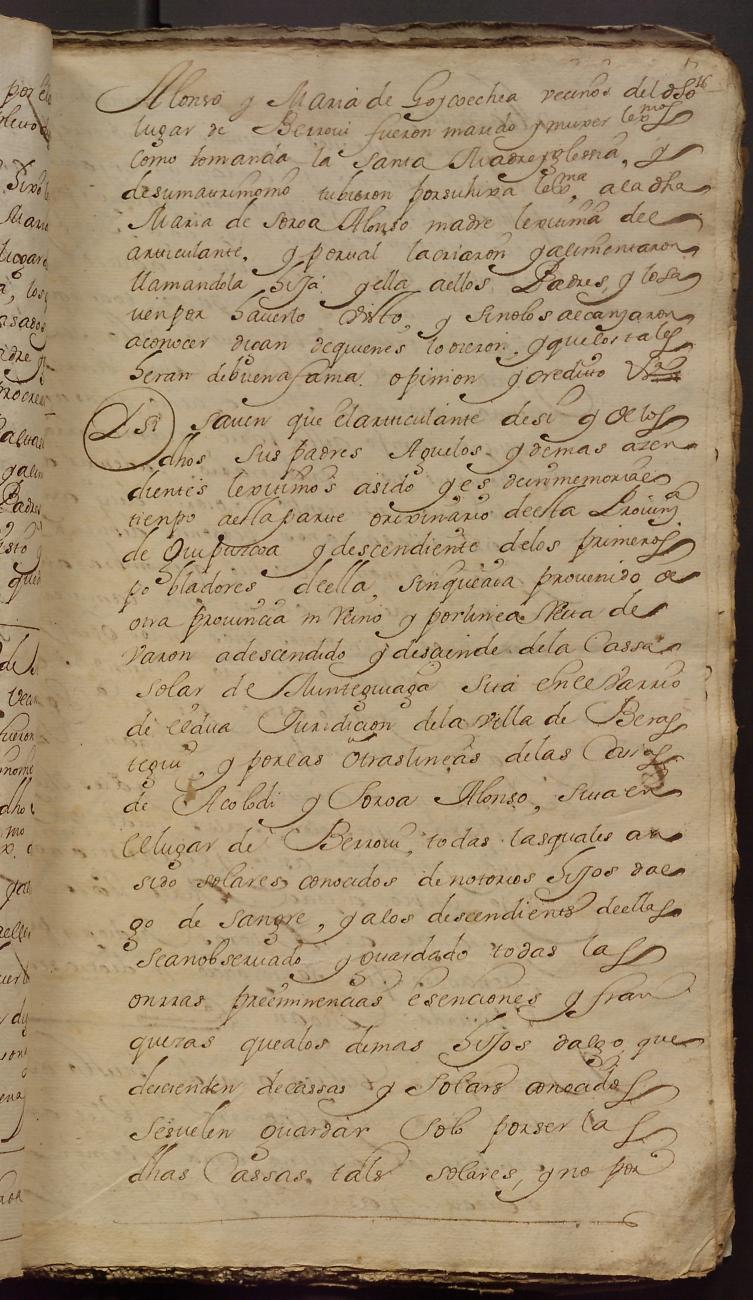 16
Alonso y Maria de Goycoechea vecinos del dho
lugar de Berrovi fueron marido y muxer lexmos
Como lo manda la Santa Madre yglessia, y
de su matrimonio tubieron por su hixa lexma, a la dha
Maria de Soroa Alonso madre lexitima del
articulante, y por tal la criaron y alimentaron
llamandola hija y ella a ellos Padres, y lo sa
ven por haverlo visto, y si no los alcanzaron
a conocer digan de quienes lo oieron, y que los tales
heran de buena fama opinion y credito
Ysi saven que el articulante de si y de los
dhos sus padres Aguelos y demas azen
dientes lexitimos a sido y es de inmemorial
tienpo a esta parte orixinario de esta Provinza
de Guipuzcoa y descendiente de los primeros
pobladores de ella, sin que aia provenido de
otra provincia ni Reino y por linea Recta de
varon a descendido y desciende de la Cassa
solar de Munteguiaga sita en el varrio
de eldua Juridicion de la villa de Beras
tegui, y por las otras lineas de las Cassas
de Acolodi y Soroa Alonso, sita en
el lugar de Berrovi, todas las quales an
sido solares conocidos de notorios hijos dal
go de sangre, y a los descendientes de ellas
se an observado y guardado todas las
onrras preeminencias esenciones y fran
quezas que a los demas hijos dalgo que
descienden de cassas y Solares conocidos
se suelen guardar Solo por ser las
dhas Cassas tales solares, y no por